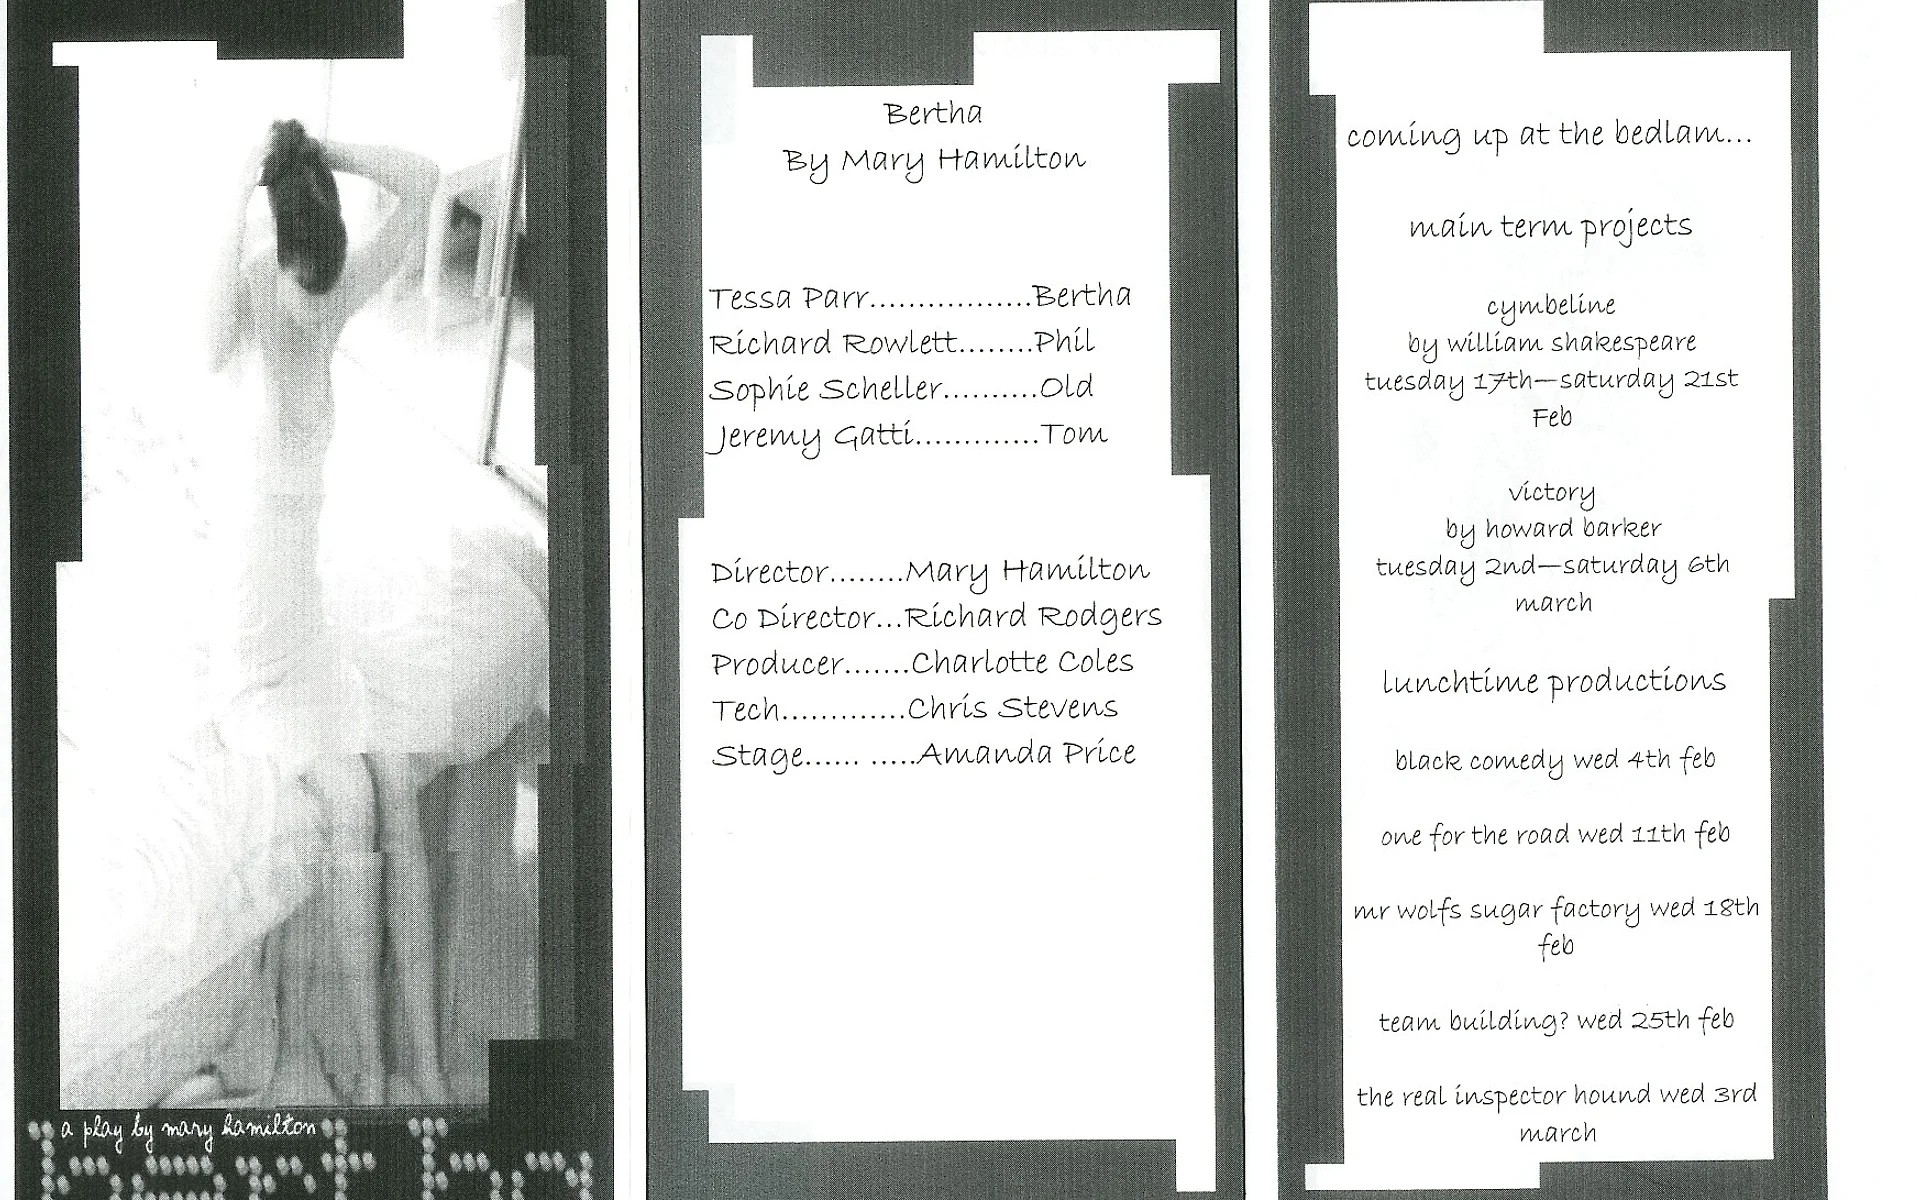 a play by mary hamilton
bertha
Bertha
By Mary Hamilton
Tessa Parr.................Bertha
Richard Rowlett........Phil
Sophie Scheller..........Old
Jeremy Gatti.............Tom
Director........Mary Hamilton
Co Director...Richard Rodgers
Producer.......Charlotte Coles
Tech.............Chris Stevens
Stage...... .....Amanda Price
coming up at the bedlam...
main term projects
cymbeline
by william shakespeare
tuesday 17th—saturday 21st
Feb
victory
by howard barker
tuesday 2nd—saturday 6th
march
lunchtime productions
black comedy wed 4th feb
one for the road wed 11th feb
mr wolfs sugar factory wed 18th
feb
team building? wed 25th feb
the real inspector hound wed 3rd
march